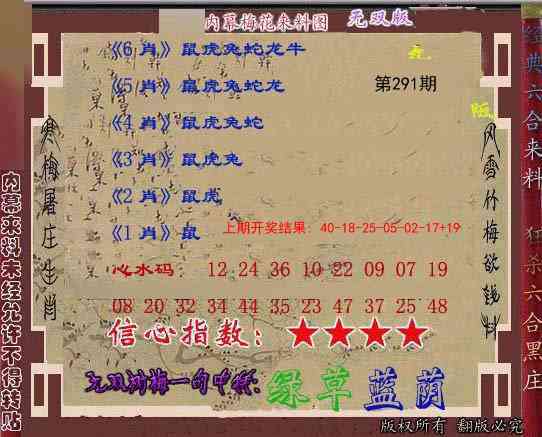 内幕梅花来料图 无双版
《6 肖》鼠虎兔蛇龙牛
《5 肖》鼠虎兔蛇龙
第291期
《4 肖》鼠虎兔蛇
《3 肖》鼠虎兔
《2 肖》鼠虎
《1 肖》鼠
上期开奖结果：40-18-25-05-02-17+19
心水码： 12 24 36 10 22 09 07 19
08 20 32 34 44 35 23 47 37 25 48
信心指数：★★★★
无双浏梅一句中特:绿草蓝荫
寒梅屠庄生肖
风雪竹梅欲钱料
内幕来料未经允许不得转贴
经典六合来料 狂杀六合黑庄
版权所有 翻版必究